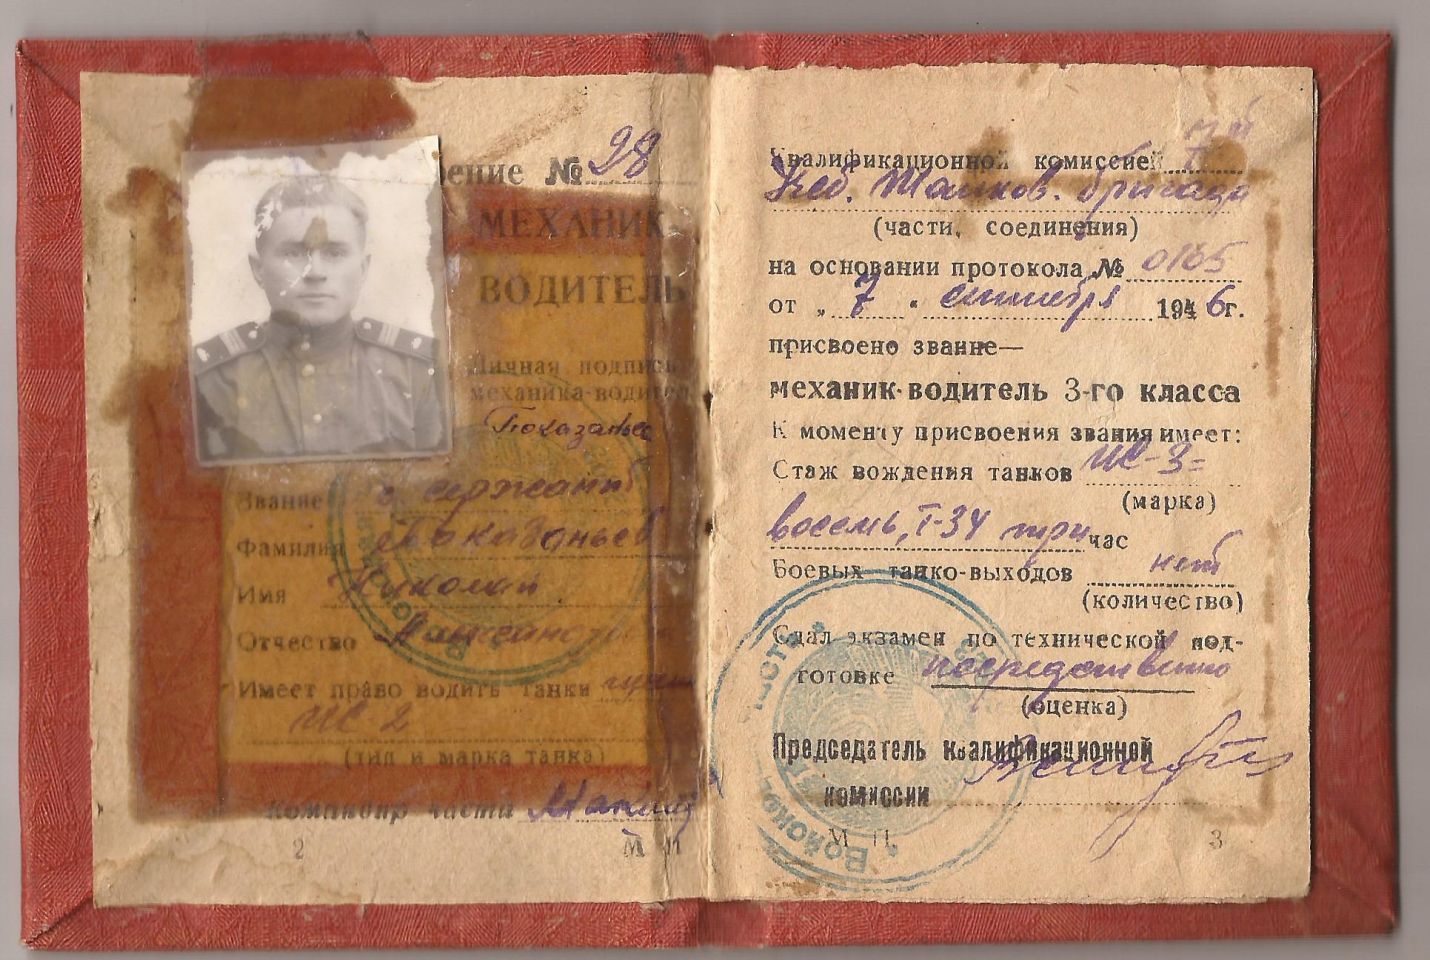 ение № 98
МЕХАНИК
ВОДИТЕЛЬ
Личная подпись
механика-водител
Показаньев
Звание с. сержант
Фамилия Показаньев
Имя Николай
Отчество
Имеет право водить танки
ИС 2
(тип и марка танка)
командир части
2
М П
Квалификационной комиссией 7й
Учеб. Танков. бригада
(части, соединения)
на основании протокола № 0165
от „ 7 “ сентября 1946г.
присвоено звание—
механик-водитель 3-го класса
К моменту присвоения звания имеет:
Стаж вождения танков ИС-3=
(марка)
восемь, Т-34 три час
Боевых танко-выходов нет
(количество)
Сдал экзамен по технической под-
готовке посредственно
(оценка)
Председатель квалификационной
комиссии
М П
3
Войсковая часть